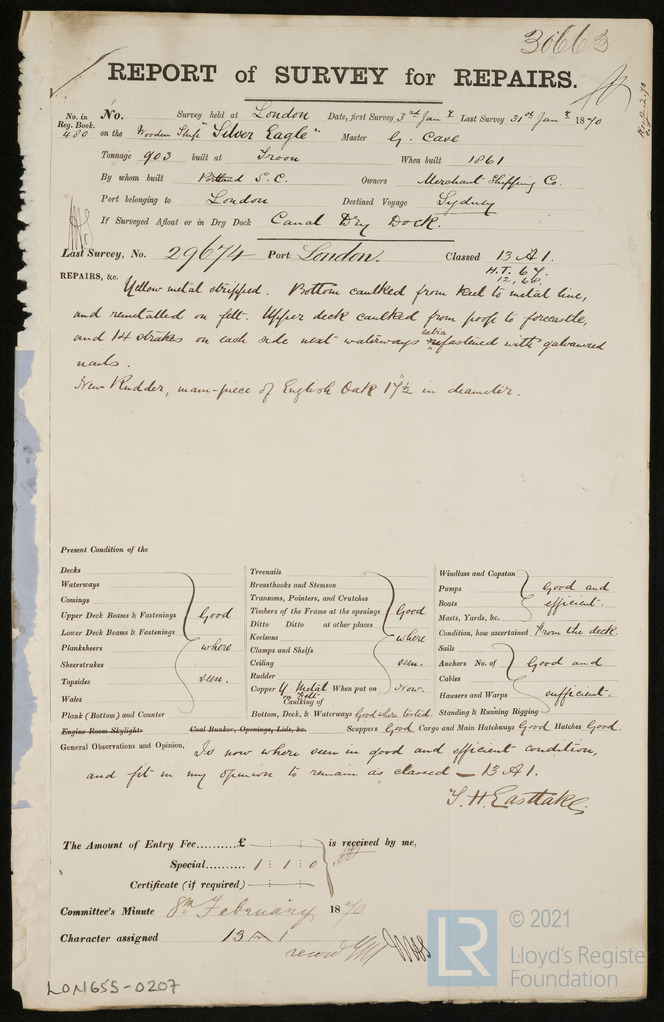 30663
REPORT of SURVEY for REPAIRS.
No. in Reg. Book. 480
No. Survey held at London Date, first Survey 3rd Jany Last Survey 31st Jany 1870
on the Wooden Ship "Silver Eagle" Master G. Cave
Tonnage 903 built at Troon When built 1861
By whom built Portland S. C. Owners Merchant Shipping Co.
Port belonging to London Destined Voyage Sydney
If Surveyed Afloat or in Dry Dock Canal Dry Dock.
Last Survey, No. 29674 Port London. Classed 13 A 1.
H.T. 67.
12, 66.
REPAIRS, &c. Yellow metal stripped. Bottom caulked from keel to metal line,
and remetalled on felt. Upper deck caulked from poop to forecastle,
and 14 strakes on each side next waterways extra refastened with galvanized
nails.
New Rudder, main-piece of English Oak 17½" in diameter.
Present Condition of the
Decks
Waterways
Comings
Upper Deck Beams & Fastenings
Lower Deck Beams & Fastenings
Planksheers
Sheerstrakes
Topsides
Wales
Plank (Bottom) and Counter
Good
where
seen.
Treenails
Breasthooks and Stemson
Transoms, Pointers, and Crutches
Timbers of the Frame at the openings
Ditto Ditto at other places
Keelsons
Clamps and Shelfs
Ceiling
Rudder
Good
where
seen.
Copper Y. Metal on Felt When put on Now.
Caulking of
Bottom, Deck, & Waterways Good where tested.
Windlass and Capstan
Pumps
Boats
Masts, Yards, &c.
Good and
efficient.
Condition, how ascertained From the deck
Sails
Anchors No. of
Cables
Hawsers and Warps
Standing & Running Rigging
Good and
sufficient.
Engine Room Skylights Coal Bunker, Openings, Lids, &c. Scuppers Good Cargo and Main Hatchways Good Hatches Good.
General Observations and Opinion, Is now where seen in good and efficient condition,
and fit in my opinion to remain as classed — 13 A 1.
T. H. Eastlake
The Amount of Entry Fee..........£ — : — : — is received by me,
Special.......... 1 : 1 : 0
Certificate (if required) — : — : —
Committee's Minute 8th February 1870
Character assigned 13 A 1
LON655-0207
LR
© 2021
Lloyd's Register
Foundation